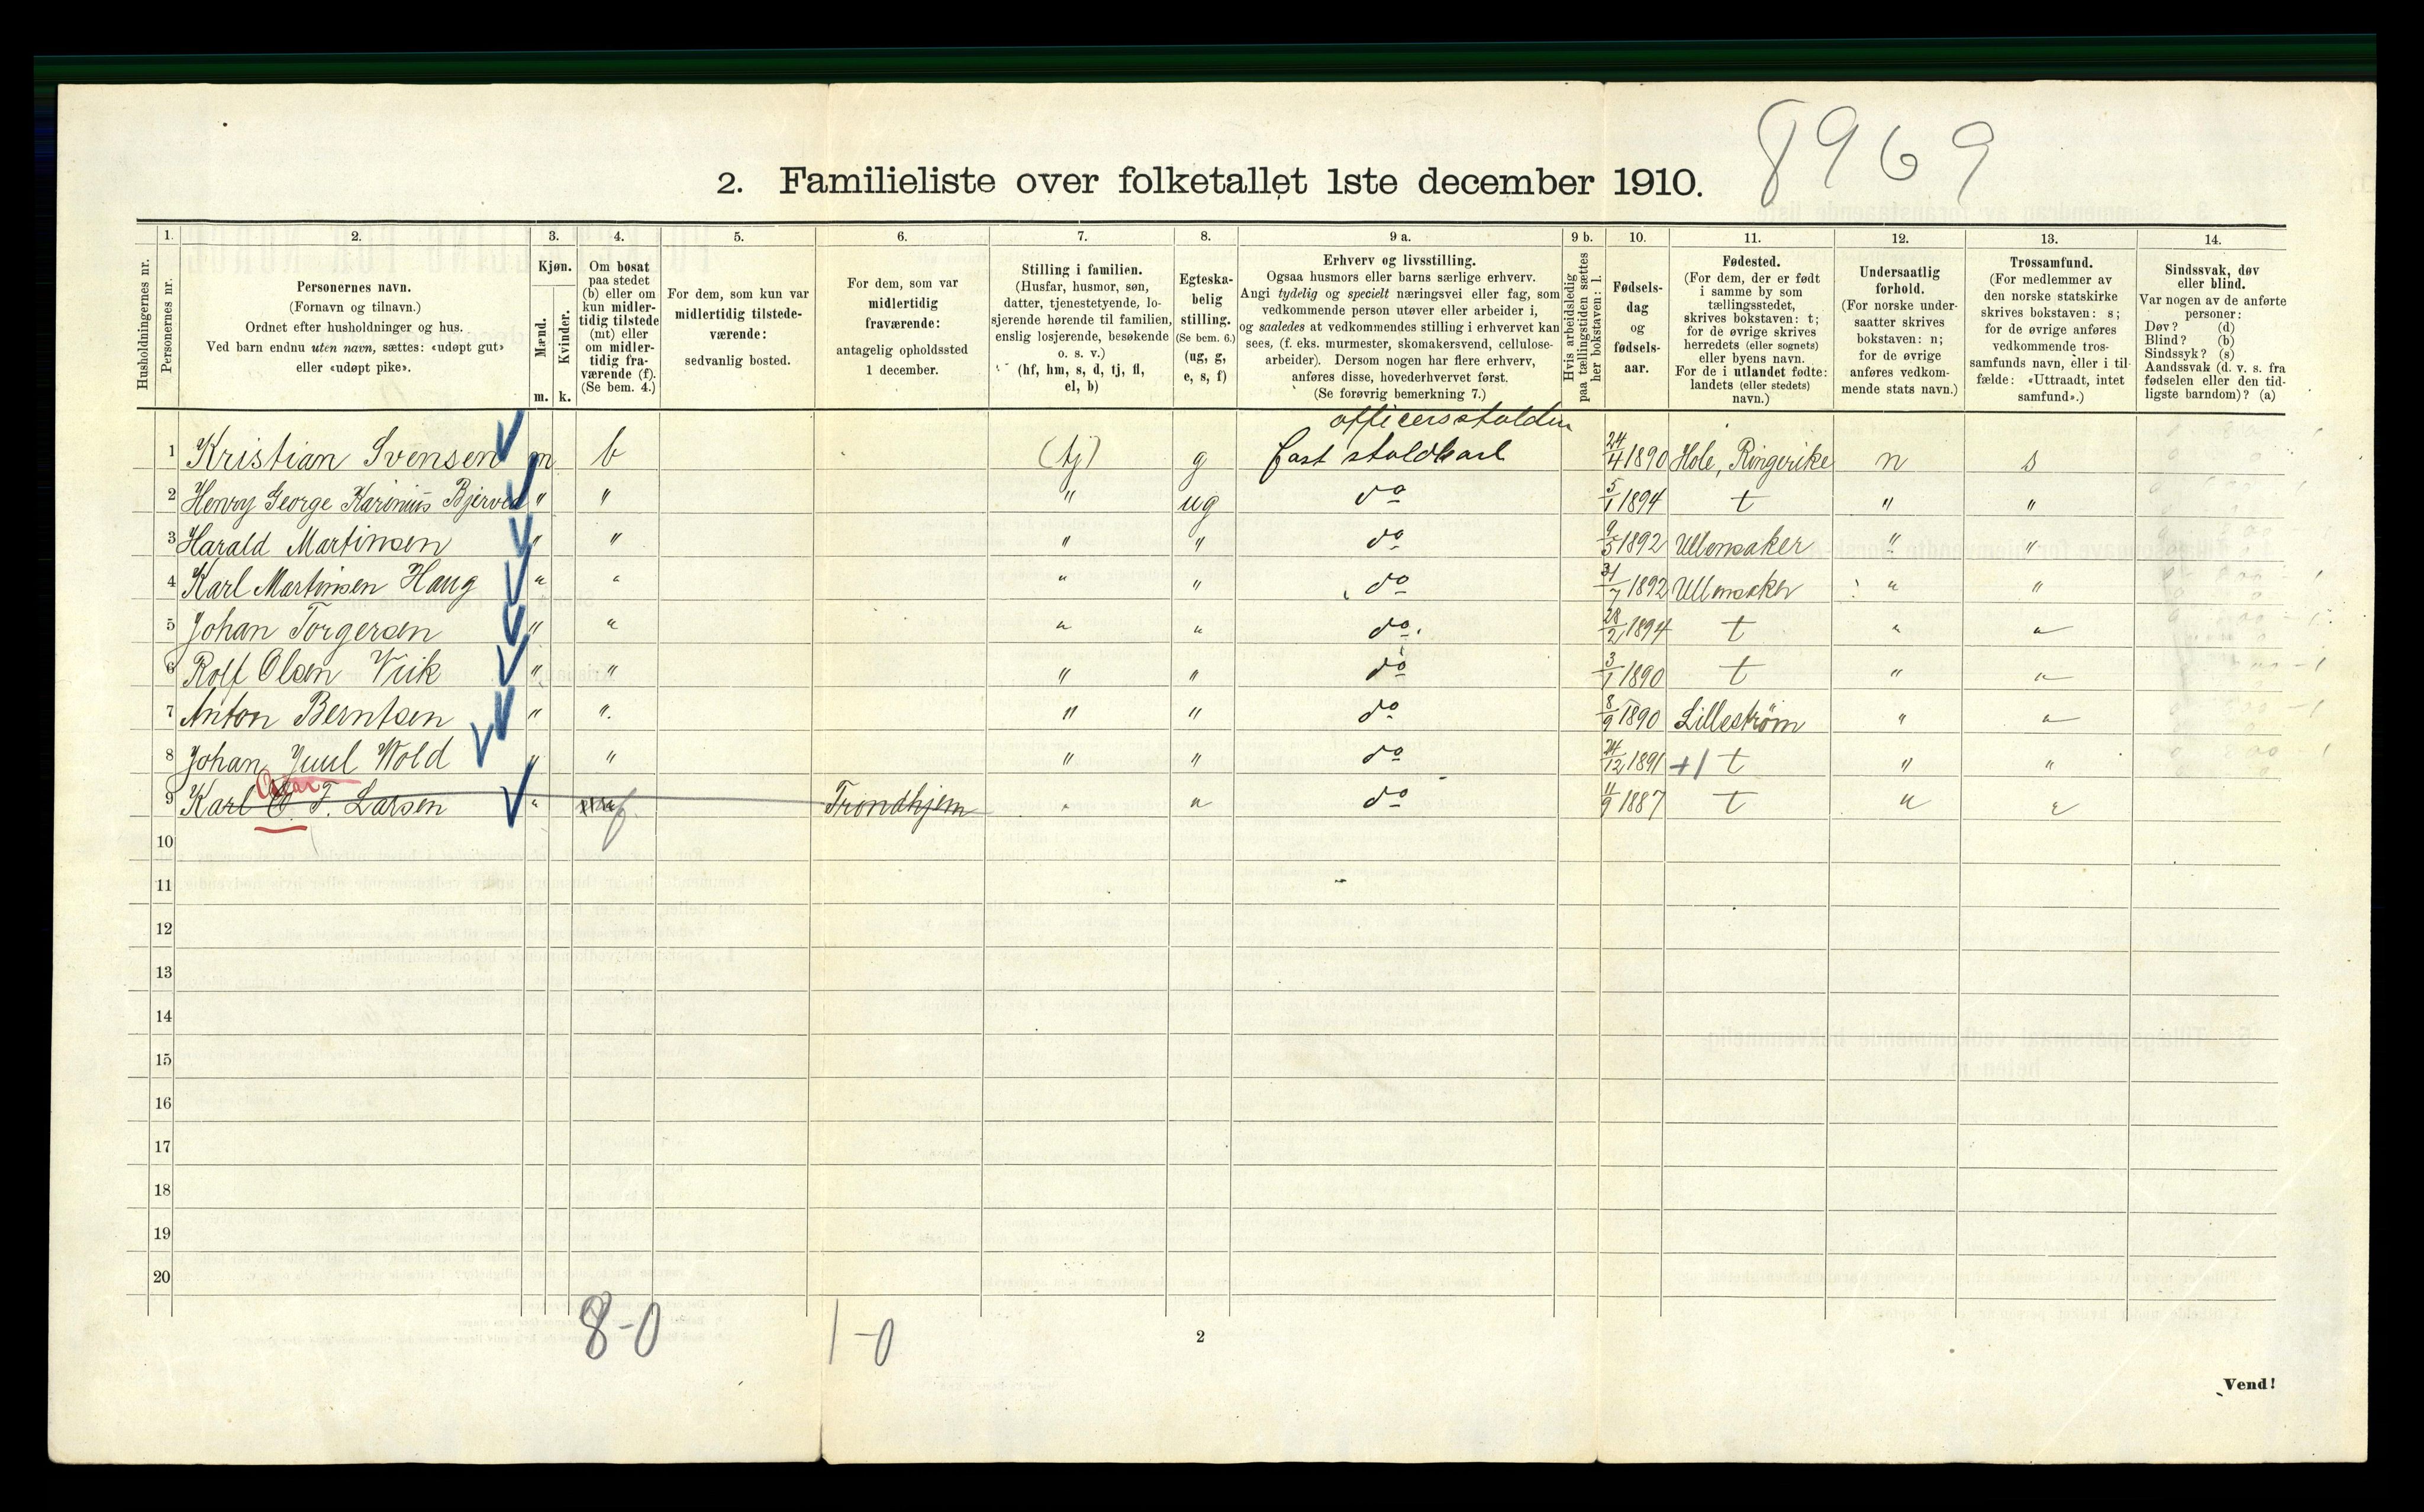 8969
2. Familieliste over folketallet 1ste december 1910.
1. 2. 3. 4. 5. 6. 7. 8. 9 a. 9 b. 10. 11. 12. 13. 14.
Husholdningernes nr.
Personernes nr.
Personernes navn.
(Fornavn og tilnavn.)
Ordnet efter husholdninger og hus.
Ved barn endnu uten navn, sættes: «udøpt gut»
eller «udøpt pike».
Kjøn.
Mænd.
Kvinder.
m. k.
Om bosat
paa stedet
(b) eller om
kun midler-
tidig tilstede
(mt) eller
om midler-
tidig fra-
værende (f).
(Se bem. 4.)
For dem, som kun var
midlertidig tilstede-
værende:
sedvanlig bosted.
For dem, som var
midlertidig
fraværende:
antagelig opholdssted
1 december.
Stilling i familien.
(Husfar, husmor, søn,
datter, tjenestetyende, lo-
sjerende hørende til familien,
enslig losjerende, besøkende
o. s. v.)
(hf, hm, s, d, tj, fl,
el, b)
Egteska-
belig
stilling.
(Se bem. 6.)
(ug, g,
e, s, f)
Erhverv og livsstilling.
Ogsaa husmors eller barns særlige erhverv.
Angi tydelig og specielt næringsvei eller fag, som
vedkommende person utøver eller arbeider i,
og saaledes at vedkommendes stilling i erhvervet kan
sees, (f. eks. murmester, skomakersvend, cellulose-
arbeider). Dersom nogen har flere erhverv,
anføres disse, hovederhvervet først.
(Se forøvrig bemerkning 7.)
Hvis arbeidsledig
paa tællingstiden sættes
her bokstaven: l.
Fødsels-
dag
og
fødsels-
aar.
Fødested.
(For dem, der er født
i samme by som
tællingsstedet,
skrives bokstaven: t;
for de øvrige skrives
herredets (eller sognets)
eller byens navn.
For de i utlandet fødte:
landets (eller stedets)
navn.)
Undersaatlig
forhold.
(For norske under-
saatter skrives
bokstaven: n;
for de øvrige
anføres vedkom-
mende stats navn.)
Trossamfund.
(For medlemmer av
den norske statskirke
skrives bokstaven: s;
for de øvrige anføres
vedkommende tros-
samfunds navn, eller i til-
fælde: «Uttraadt, intet
samfund».)
Sindssvak, døv
eller blind.
Var nogen av de anførte
personer:
Døv? (d)
Blind? (b)
Sindssyk? (s)
Aandssvak (d. v. s. fra
fødselen eller den tid-
ligste barndom)? (a)
officersstalden
1 Kristian Svensen m b (tj) g fast staldkarl 24/4 1890 Hole, Ringerike n s
2 Henry George Karinius Bjerved " " " ug do 5/1 1894 t " "
3 Harald Martinsen " " " " do 9/5 1892 Ullensaker " "
4 Karl Martinsen Haug " " " " do 31/7 1892 Ullensaker " "
5 Johan Torgersen " " " " do. 28/2 1894 t " "
6 Rolf Olsen Viik " " " " do 3/1 1890 t " "
7 Anton Berntsen " " " " do 8/9 1890 Lilleström " "
8 Johan Juul Wold " " " " do 24/12 1891 +1 t " "
Oskar
9 Karl O. F. Larsen " f Trondhjem " " do 11/9 1887 t " "
10
11
12
13
14
15
16
17
18
19
20
8-0 1-0
2
Vend!